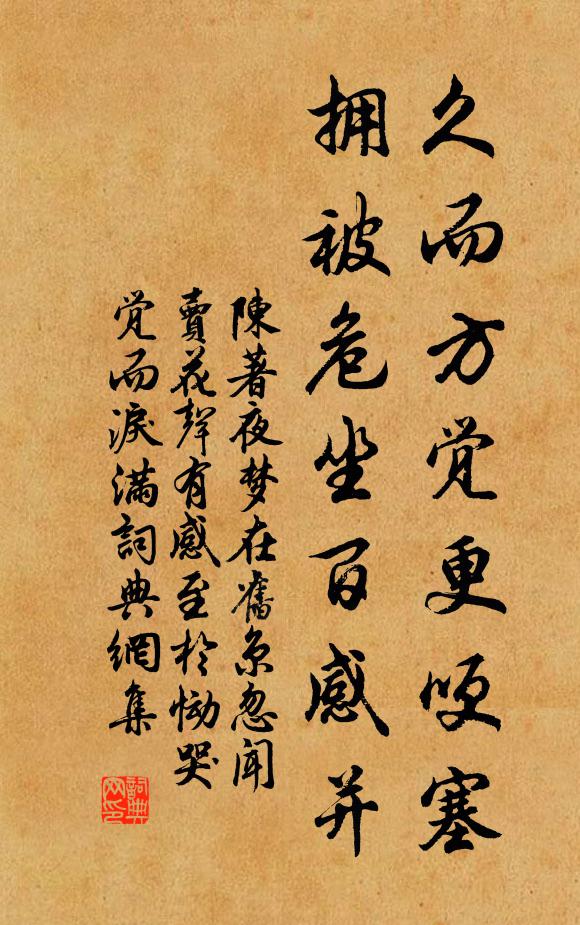 久而方觉更哽塞
拥被危坐百感并
陳著夜梦在舊京忽闻
賣花聲有感至於恸哭
觉而淚满詞典網集
詞典网印